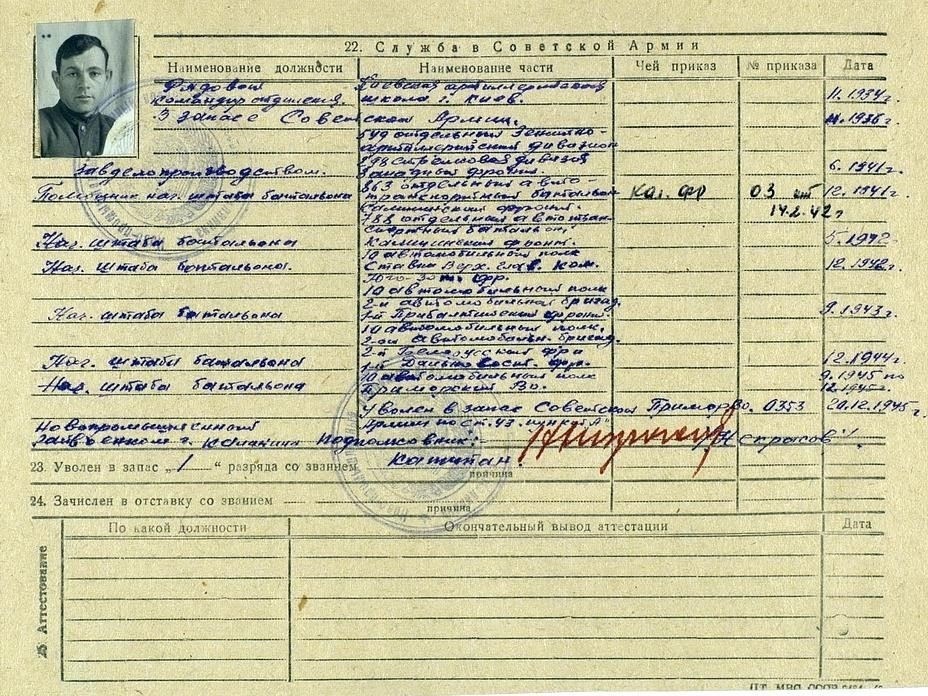 22. Служба в Советской Армии
Наименование должности Наименование части Чей приказ № приказа Дата
Рядовой Киевская артиллерийская
Командир отделения. школа г. Киев. 11.1934 г.
В запасе Советской Армии. 11.1936 г.
549 отдельный Зенитно-
артиллерийский дивизион
198 стрелковой дивизии
Завделопроизводством. Западный фронт. 6.1941 г.
863 отдельный авто-
Помощник нач. штаба батальона транспортный батальон Кал. фр 03 12.1941 г.
Калининский фронт. 14.2.42 г
788 отдельный автотран
спортный батальон
Нач. штаба батальона Калининский фронт. 5.1942
10 автомобильный полк
Нач. штаба батальона. Ставки Верх. Глав. Ком. 12.1942 г.
Юго-Зап. фр.
10 автомобильный полк
2-й автомобильной бригад.
Нач. штаба батальона 1й Прибалтийский фронт. 9.1943 г.
10 автомобильный полк.
2-ой автомобильн. бригад.
2-й Белорусский фр
Нач. штаба батальона 1й Дальневост. фр. 12.1944 г.
10 автомобильный полк 9.1945 по
Нач. штаба батальона Приморский Во. 12.1945 г.
Уволен в запас Советской Примор Во. 0353 20.12.1945 г.
Армии по ст. 43, пункт "А"
Новопромышленный
Райвоенком г. Калинина Подполковник: /Некрасов/
23. Уволен в запас „ 1 “ разряда со званием Капитан.
причина
24. Зачислен в отставку со званием
причина
25. Аттестование
По какой должности Окончательный вывод аттестации Дата